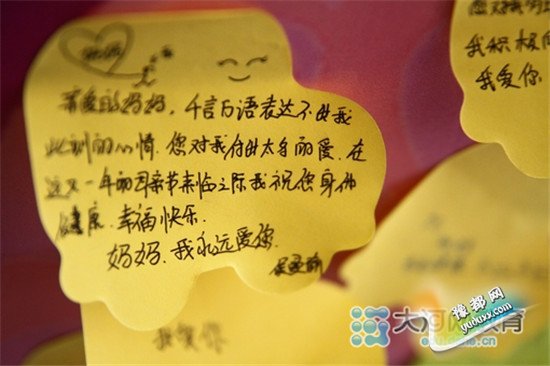 亲爱的妈妈，千言万语表达不出我
此刻的心情.您对我付出太多的爱.在
这又一年的母亲节来临之际我祝您身体
健康.幸福快乐.
妈妈.我永远爱你.
您对我的
我积极
我爱你
我爱你
大河网教育
豫都网
yuduxx.com